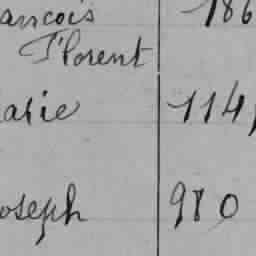 ancois 186
Florent
arie 114
oseph 980